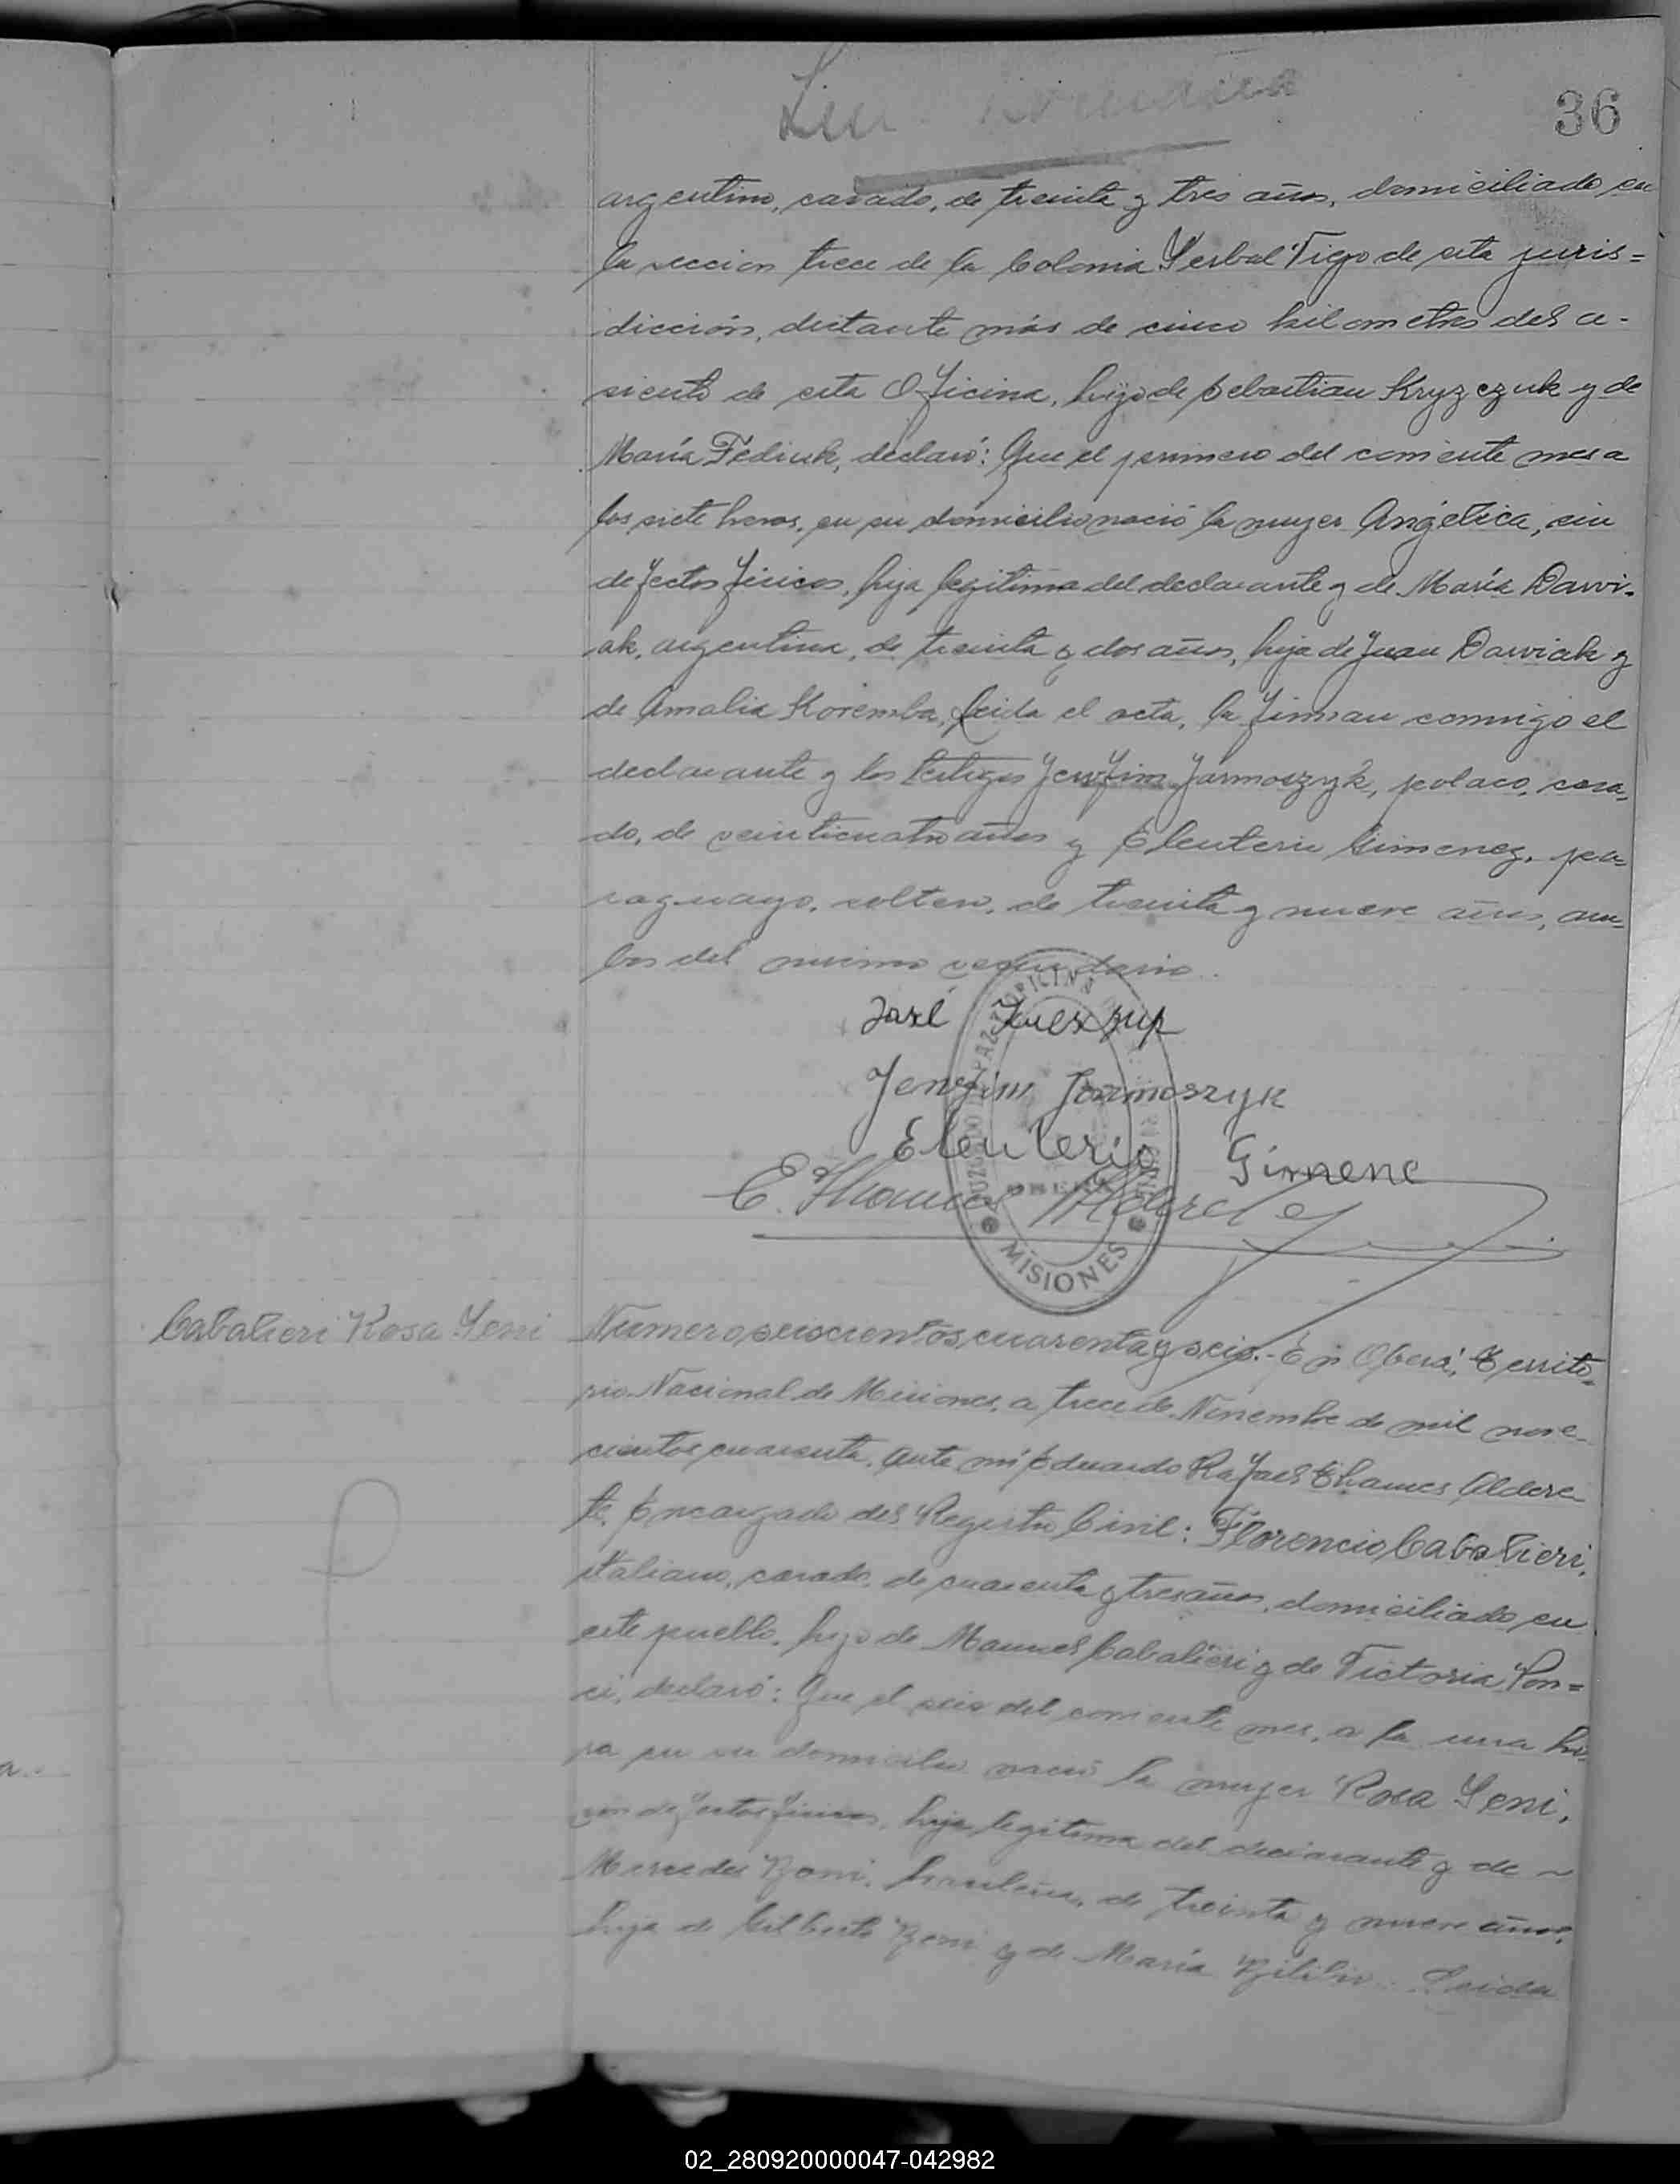 36
argentino, casado, de treinta y tres años, domiciliado en
la seccion trece de la Colonia Yerbal Viejo de esta juris=
dicción, distante más de cinco kilometros del a-
siento de esta Oficina, hijo de Sebastian Kryzczuk y de
María Fediuk, declaró: Que el primero del corriente mes a
las siete horas, en su domicilio nació la mujer Angélica, sin
defectos físicos, hija legitima del declarante y de María Darvi-
ak, argentina, de treinta y dos años, hija de Juan Darviak y
de Amalia Koremba, Leida el acta, la firman conmigo el
declarante y los testigos Jerofim Jarmoszyk, polaco, casa-
do, de veinticuatro años y Eleuterio Gimenez, pa-
raguayo, soltero, de treinta y nueve años, am-
bos del mismo vecindario.
José
Jarmoszyk
Eleuterio Gimene
MISIONES
Cabalieri Rosa Yeni
Numero seiscientos cuarenta y seis.- En Oberá, Territo-
rio Nacional de Misiones, a trece de Noviembre de mil nove-
cientos cuarenta. Ante mí Eduardo Rafael Thames Aldere-
te, Encargado del Registro Civil: Florencio Cabalieri,
italiano, casado, de cuarenta y tres años, domiciliado en
este pueblo, hijo de Manuel Cabalieri y de Victoria Pon=
ci, declaró: Que el seis del corriente mes, a la una ho-
ra en su domicilio nació la mujer Rosa Yeni,
sin defectos físicos, hija legitima del declarante y de
Mercedes Zeni, brasileña, de treinta y nueve años,
hija de Gilberto Zeni y de María Leida
02_280920000047-042982